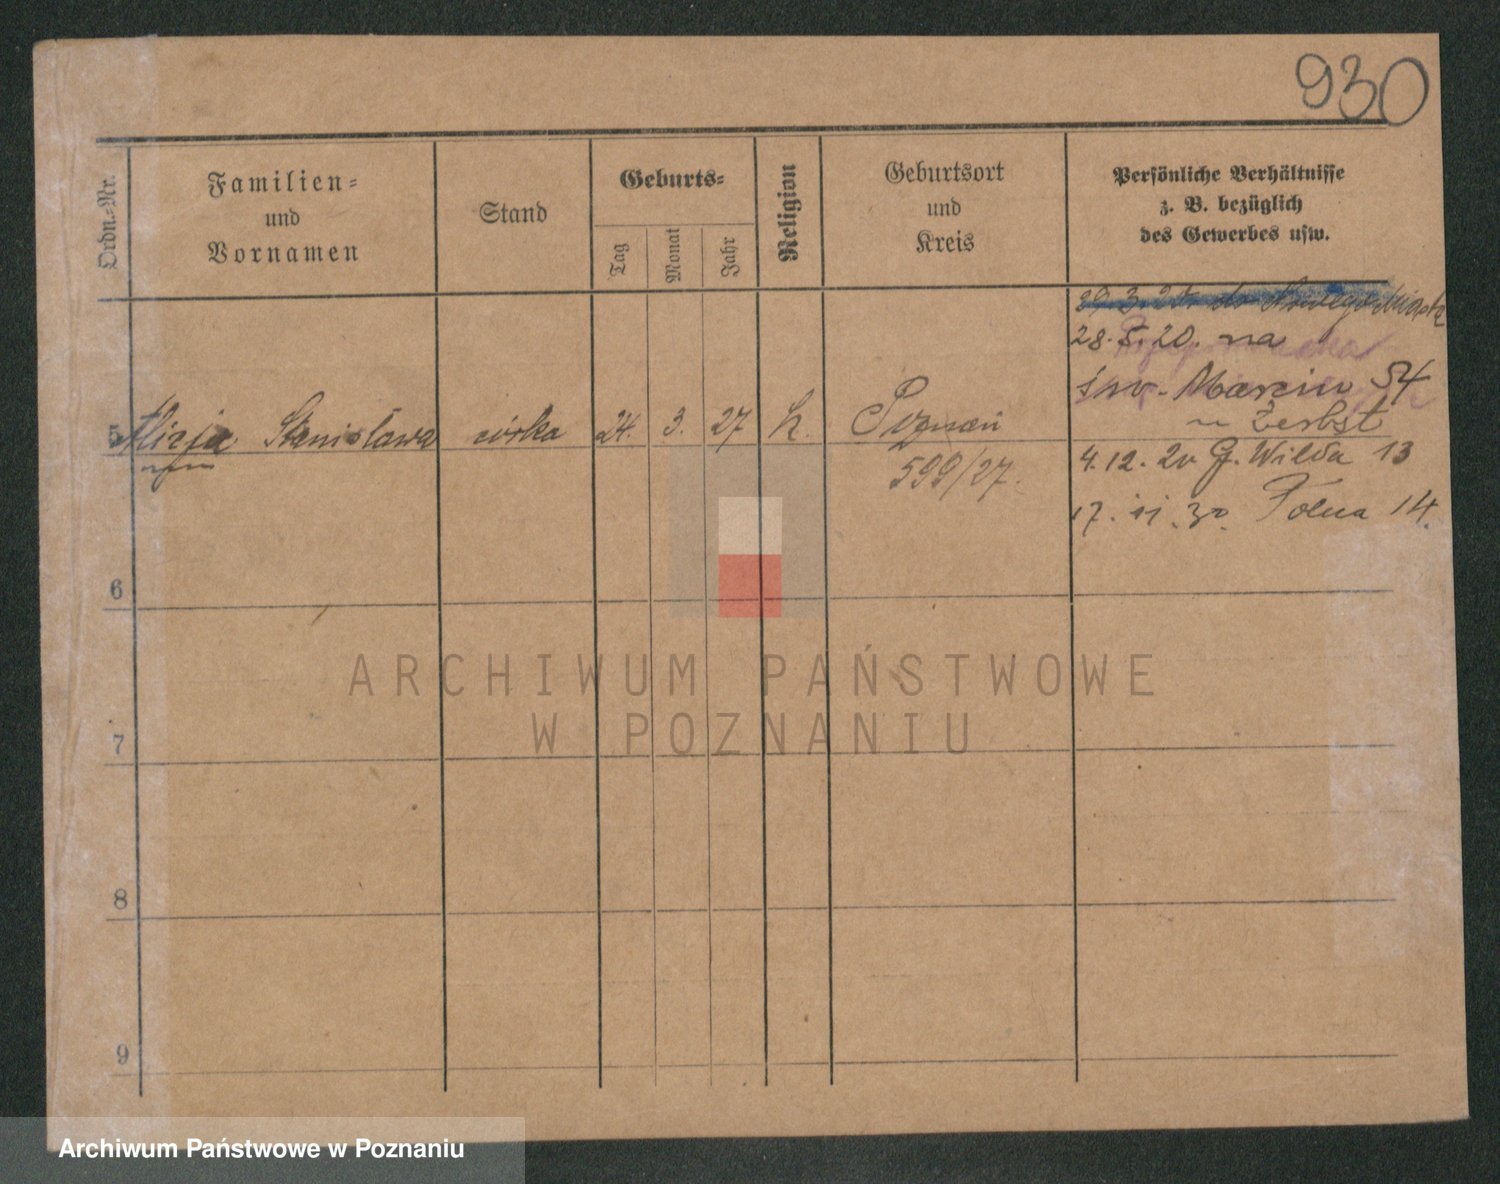 930
Ordn.-Nr.
Familien-
und
Vornamen
Stand
Geburts-
Tag
Monat
Jahr
Religion
Geburtsort
und
Kreis
Persönliche Verhältnisse
z. B. bezüglich
des Gewerbes usw.
28. 5. 20. na
św. Marcin 54
Zerbst
5 Alicja Stanisława córka 24. 3. 27 k. Poznań
599/27.
4. 12. 20 G. Wilda 13
17. 11. 30 Polna 14.
6
7
8
9
ARCHIWUM PAŃSTWOWE
W POZNANIU
Archiwum Państwowe w Poznaniu